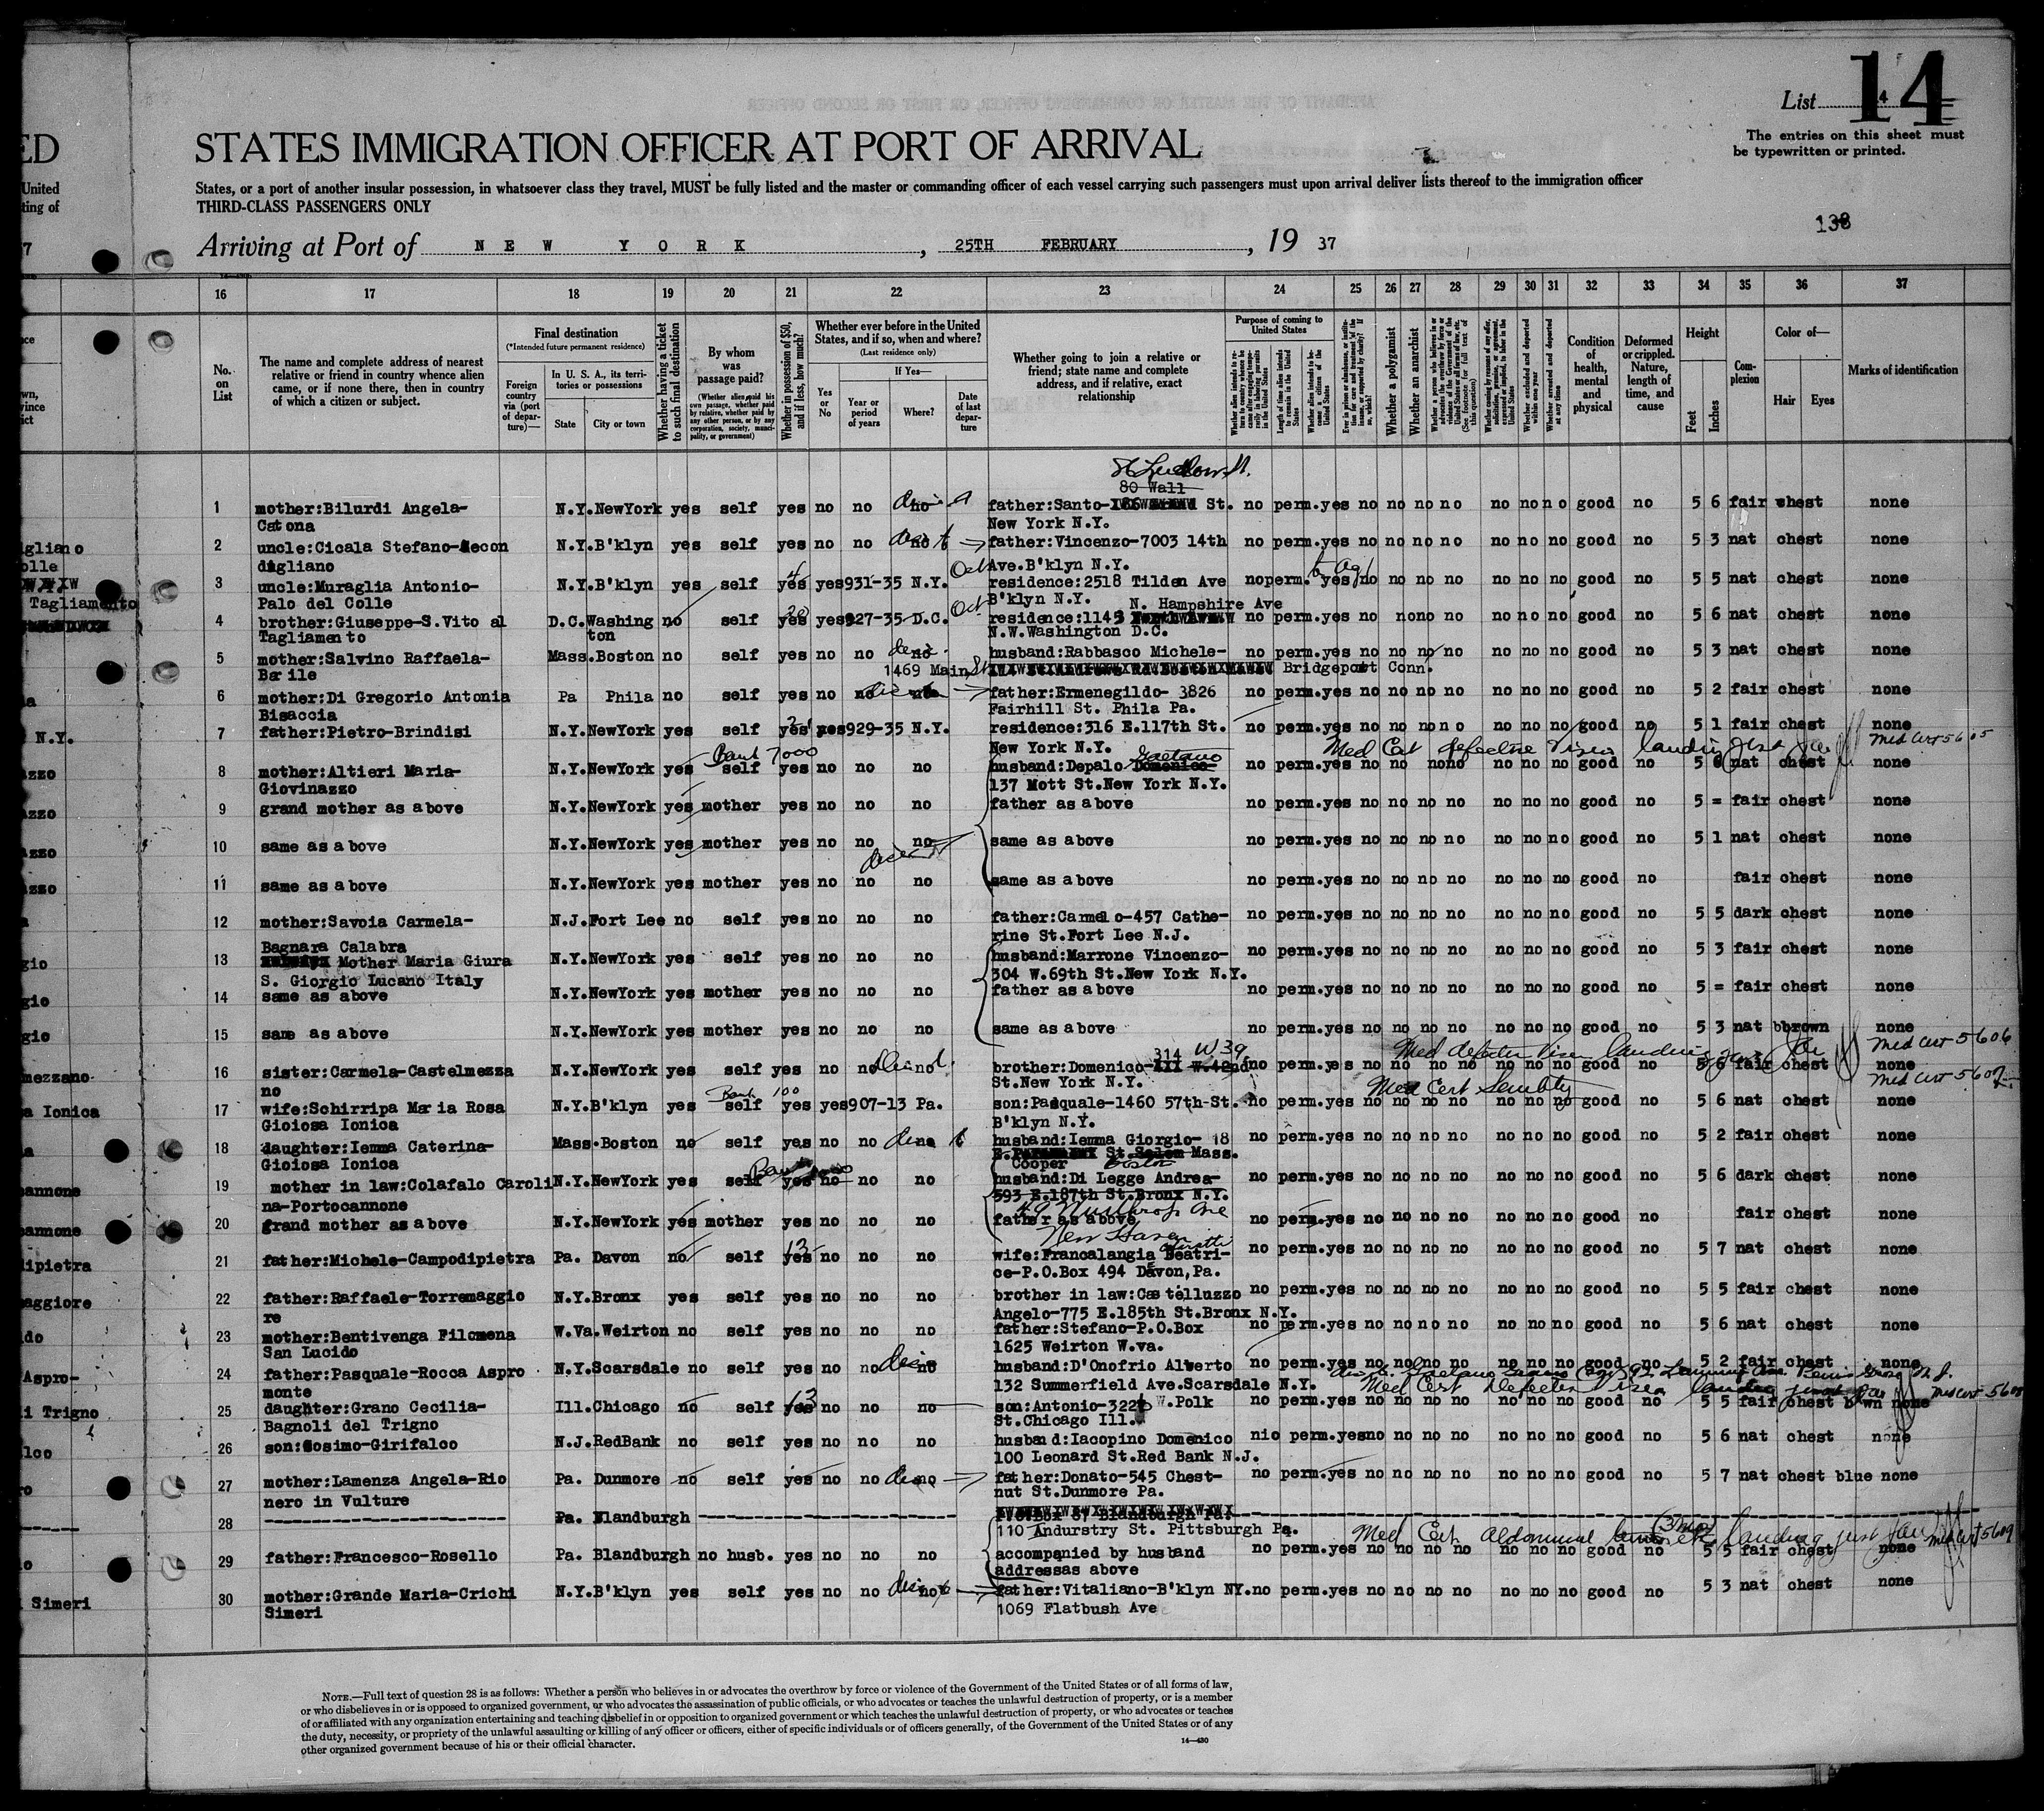 14
List 4
The entries on this sheet must
be typewritten or printed.
ED
STATES IMMIGRATION OFFICER AT PORT OF ARRIVAL
United
States, or a port of another insular possession, in whatsoever class they travel, MUST be fully listed and the master or commanding officer of each vessel carrying such passengers must upon arrival deliver lists thereof to the immigration officer
ting of
THIRD-CLASS PASSENGERS ONLY
138
7
Arriving at Port of NEW YORK, 25TH FEBRUARY, 19 37
16 17 18 19 20 21 22 23 24 25 26 27 28 29 30 31 32 33 34 35 36 37
No. on List
The name and complete address of nearest relative or friend in country whence alien came, or if none there, then in country of which a citizen or subject.
Final destination
(*Intended future permanent residence)
Foreign country via (port of departure)—
In U. S. A., its territories or possessions
State
City or town
Whether having a ticket to such final destination
By whom was passage paid?
(Whether alien paid his own passage, whether paid by relative, whether paid by any other person, or by any corporation, society, municipality, or government)
Whether in possession of $50, and if less, how much?
Whether ever before in the United States, and if so, when and where?
(Last residence only)
Yes or No
If Yes—
Year or period of years
Where?
Date of last departure
Whether going to join a relative or friend; state name and complete address, and if relative, exact relationship
Purpose of coming to United States
Whether alien intends to return to country whence he came after engaging temporarily in laboring pursuits in the United States
Length of time alien intends to remain in the United States
Whether alien intends to become a citizen of the United States
Ever in prison or almshouse, or institution for care and treatment of the insane, or supported by charity? If so, which?
Whether a polygamist
Whether an anarchist
(See footnote for full text of this question)
Whether excluded and deported within one year
Whether arrested and deported at any time
Condition of health, mental and physical
Deformed or crippled. Nature, length of time, and cause
Height
Feet
Inches
Complexion
Color of—
Hair
Eyes
Marks of identification
80 Wall
1 mother:Bilurdi Angela- N.Y. NewYork yes self yes no no no father:Santo- St. no perm. yes no no no no no no no good no 5 6 fair chest none
Catona New York N.Y.
2 uncle:Cicala Stefano-Mecon N.Y. B'klyn yes self yes no no no father:Vincenzo-7003 14th no perm. yes no no no no no no no good no 5 3 nat chest none
digliano Ave.B'klyn N.Y.
3 uncle:Muraglia Antonio- N.Y. B'klyn yes self yes yes 931-35 N.Y. Oct residence:2518 Tilden Ave no perm. yes no no no no no no no good no 5 5 nat chest none
Palo del Colle B'klyn N.Y.
N. Hampshire Ave
4 brother:Giuseppe-S.Vito al D.C. Washing no self 20 yes yes 927-35 D.C. Oct residence:1145 no perm. yes no no no no no no no good no 5 6 nat chest none
Tagliamento ton N.W.Washington D.C.
5 mother:Salvino Raffaela- Mass. Boston no self yes no no no husband:Rabbasco Michele- no perm. yes no no no no no no no good no 5 3 nat chest none
Barile 1469 Main St. Bridgeport Conn.
6 mother:Di Gregorio Antonia Pa Phila no self yes no no no father:Ermenegildo- 3826 no perm. yes no no no no no no no good no 5 2 fair chest none
Bisaccia Fairhill St. Phila Pa.
7 father:Pietro-Brindisi N.Y. NewYork yes self yes yes 929-35 N.Y. residence:316 E.117th St. no perm. yes no no no no no no no good no 5 1 fair chest none
New York N.Y. Med Cert defective Vision Med Cert 5605
Bank 7000
8 mother:Altieri Maria- N.Y. NewYork yes self yes no no no husband:Depalo Domenico- Gaetano no perm. yes no no no no no no no good no 5 6 nat chest none
Giovinazzo 137 Mott St.New York N.Y.
9 grand mother as above N.Y. NewYork yes mother yes no no no father as above no perm. yes no no no no no no no good no 5 = fair chest none
10 same as above N.Y. NewYork yes mother yes no no no same as above no perm. yes no no no no no no no good no 5 1 nat chest none
11 same as above N.Y. NewYork yes mother yes no no no same as above no perm. yes no no no no no no no good no fair chest none
12 mother:Savoia Carmela- N.J. Fort Lee no self yes no no no father:Carmelo-457 Cathe- no perm. yes no no no no no no no good no 5 5 dark chest none
Bagnara Calabra rine St.Fort Lee N.J.
13 Mother Maria Giura N.Y. NewYork yes self yes no no no husband:Marrone Vincenzo- no perm. yes no no no no no no no good no 5 3 fair chest none
S. Giorgio Lucano Italy 304 W.69th St.New York N.Y.
14 same as above N.Y. NewYork yes mother yes no no no father as above no perm. yes no no no no no no no good no 5 = fair chest none
15 same as above N.Y. NewYork yes mother yes no no no same as above no perm. yes no no no no no no no good no 5 3 nat bbrown none
Med Cert 5606
314 W 39
16 sister:Carmela-Castelmezza N.Y. NewYork yes self yes no no no brother:Domenico- W.42nd no perm. yes no no no no no no no good no 5 6 fair chest none
no St.New York N.Y. Med Cert Senility Med Cert 5607
Bank 100
17 wife:Schirripa Maria Rosa N.Y. B'klyn yes self yes yes 907-13 Pa. son:Pasquale-1460 57th-St. no perm. yes no no no no no no no good no 5 6 nat chest none
Gioiosa Ionica B'klyn N.Y.
18 daughter:Iemma Caterina- Mass. Boston no self yes no no husband:Iemma Giorgio- 18 no perm. yes no no no no no no no good no 5 2 fair chest none
Gioiosa Ionica St.Salem Mass.
Cooper Boston
19 mother in law:Colafalo Caroli N.Y. NewYork yes self yes no no no husband:Di Legge Andrea- no perm. yes no no no no no no no good no 5 6 dark chest none
na-Portocannone 593 E.187th St.Bronx N.Y.
49 Winthrop Ave
20 grand mother as above N.Y. NewYork yes mother yes no no no father as above no perm. yes no no no no no no no good no fair chest none
New Haven
21 father:Michele-Campodipietra Pa. Davon no self 13 yes no no no wife:Francalangia Beatri- no perm. yes no no no no no no no good no 5 7 nat chest none
ce-P.O.Box 494 Devon,Pa.
22 father:Raffaele-Torremaggio N.Y. Bronx yes self yes no no no brother in law:Castelluzzo no perm. yes no no no no no no no good no 5 5 fair chest none
re Angelo-775 E.185th St.Bronx N.Y.
23 mother:Bentivenga Filomena W.Va. Weirton no self yes no no no father:Stefano-P.O.Box no perm. yes no no no no no no no good no 5 6 nat chest none
San Lucido 1625 Weirton W.va.
24 father:Pasquale-Rocca Aspro N.Y. Scarsdale no self yes no no no husband:D'Onofrio Alberto no perm. yes no no no no no no no good no 5 2 fair chest none
monte 132 Summerfield Ave.Scarsdale N.Y. Med Cert Defective Vision
25 daughter:Grano Cecilia- Ill. Chicago no self 13 yes no no no son:Antonio-322 W.Polk no perm. yes no no no no no no no good no 5 5 fair chest bwn none
Bagnoli del Trigno St.Chicago Ill.
26 son:Cosimo-Girifalco N.J. RedBank no self yes no no no husband:Iacopino Domenico nio perm. yes no no no no no no no good no 5 6 nat chest none
100 Leonard St.Red Bank N.J.
27 mother:Lamenza Angela-Rio Pa. Dunmore no self yes no no no father:Donato-545 Chest- no perm. yes no no no no no no no good no 5 7 nat chest blue none
nero in Vulture nut St.Dunmore Pa.
28 Pa. Blandburgh P.O.Box 87 Blandburgh Pa.
110 Andurstry St. Pittsburgh Pa. Med Cert Med Cert 5609
29 father:Francesco-Rosello Pa. Blandburgh no husb. yes no no no accompanied by husband no perm. yes no no no no no no no good no 5 5 fair chest none
addressas above
30 mother:Grande Maria-Crichi N.Y. B'klyn yes self yes no no no father:Vitaliano-B'klyn NY. no perm. yes no no no no no no no good no 5 3 nat chest none
Simeri 1069 Flatbush Ave
NOTE.—Full text of question 28 is as follows: Whether a person who believes in or advocates the overthrow by force or violence of the Government of the United States or of all forms of law,
or who disbelieves in or is opposed to organized government, or who advocates the assassination of public officials, or who advocates or teaches the unlawful destruction of property, or is a member
of or affiliated with any organization entertaining and teaching disbelief in or opposition to organized government or which teaches the unlawful destruction of property, or who advocates or teaches
the duty, necessity, or propriety of the unlawful assaulting or killing of any officer or officers, either of specific individuals or of officers generally, of the Government of the United States or of any
other organized government because of his or their official character.
14—430